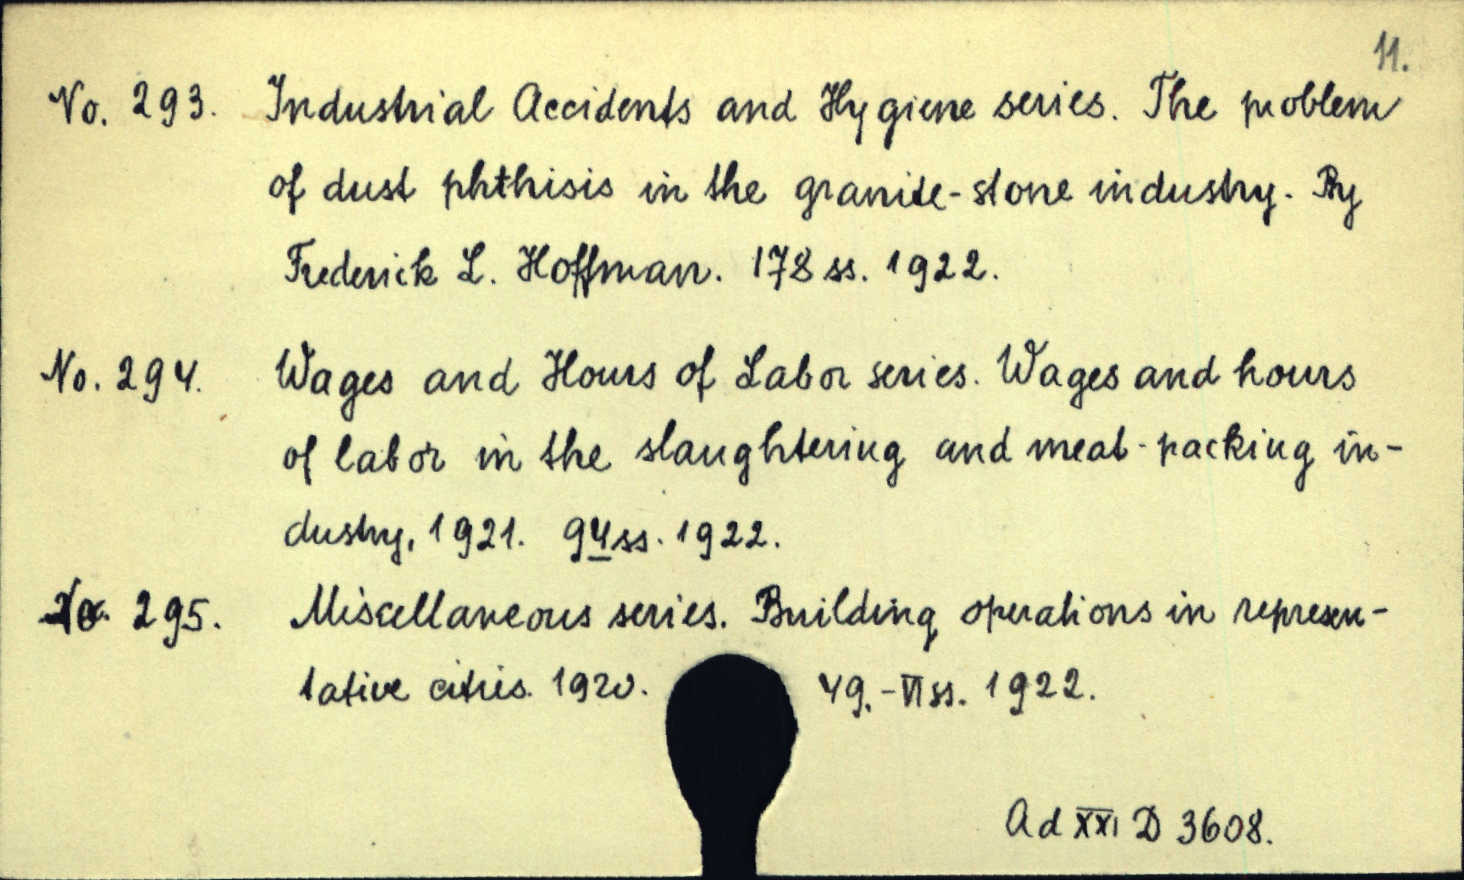 11.
No. 293. Industrial Accidents and Hygiene series. The problem
of dust phthisis in the granite-stone industry. By
Frederick L. Hoffman. 178 ss. 1922.
No. 294. Wages and Hours of Labor series. Wages and hours
of labor in the slaughtering and meat-packing in-
dustry, 1921. 94 ss. 1922.
No. 295. Miscellaneous series. Building operations in represen-
tative cities. 1920. 49.-VI ss. 1922.
Ad XXI D 3608.